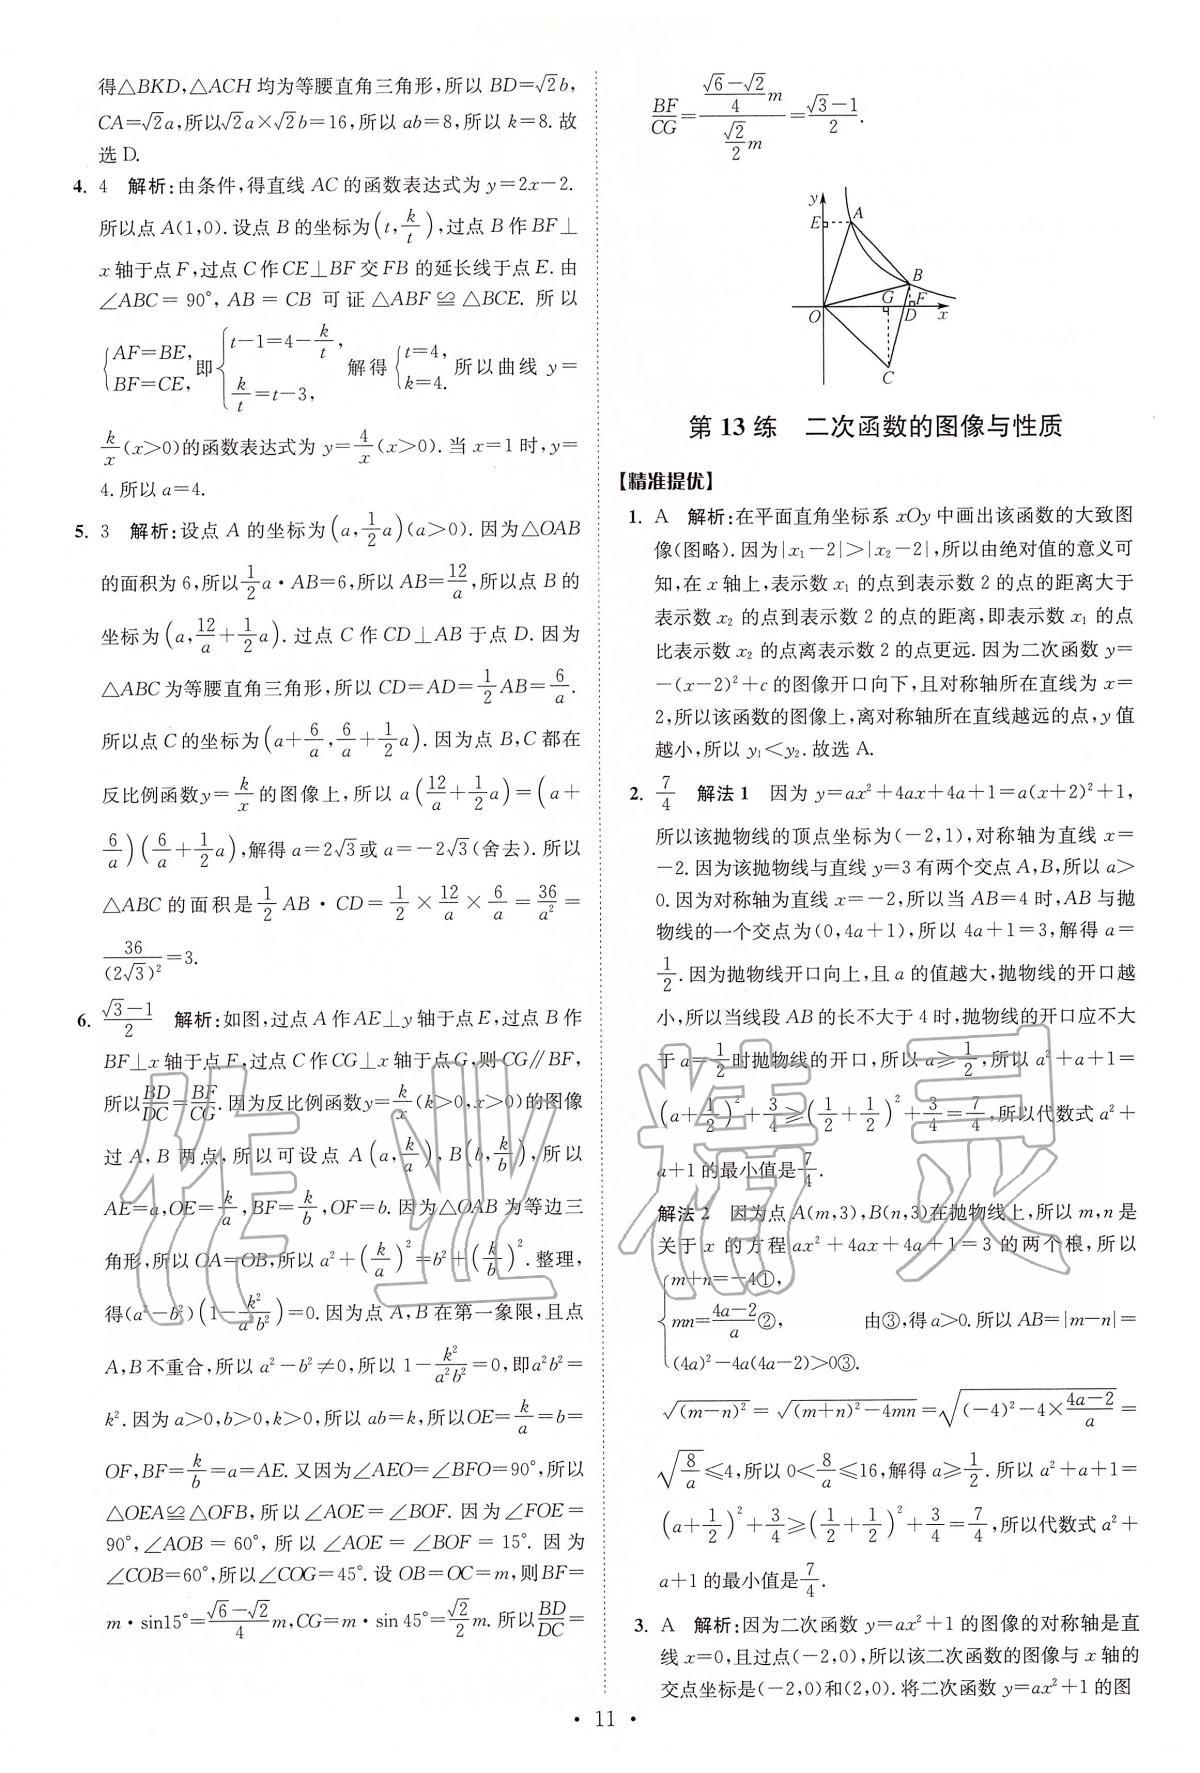 得△BKD,△ACH均为等腰直角三角形,所以BD=√2b,
CA=√2a,所以√2a×√2b=16,所以ab=8,所以k=8.故
选D.
4. 4 解析:由条件,得直线AC的函数表达式为y=2x-2.
所以点A(1,0).设点B的坐标为(t,k/t),过点B作BF⊥
x轴于点F,过点C作CE⊥BF交FB的延长线于点E.由
∠ABC=90°,AB=CB可证△ABF≌△BCE.所以
{AF=BE, BF=CE,即{t-1=4-k/t, k/t=t-3,解得{t=4, k=4.所以曲线y=
k/x(x>0)的函数表达式为y=4/x(x>0).当x=1时,y=
4.所以a=4.
5. 3 解析:设点A的坐标为(a,1/2a)(a>0).因为△OAB
的面积为6,所以1/2a·AB=6,所以AB=12/a,所以点B的
坐标为(a,12/a+1/2a).过点C作CD⊥AB于点D.因为
△ABC为等腰直角三角形,所以CD=AD=1/2AB=6/a.
所以点C的坐标为(a+6/a,6/a+1/2a).因为点B,C都在
反比例函数y=k/x的图像上,所以a(12/a+1/2a)=(a+
6/a)(6/a+1/2a),解得a=2√3或a=-2√3(舍去).所以
△ABC的面积是1/2AB·CD=1/2×12/a×6/a=36/a²=
36/(2√3)²=3.
6. (√3-1)/2 解析:如图,过点A作AE⊥y轴于点E,过点B作
BF⊥x轴于点F,过点C作CG⊥x轴于点G,则CG∥BF,
所以BD/DC=BF/CG.因为反比例函数y=k/x(k>0,x>0)的图像
过A,B两点,所以可设点A(a,k/a),B(b,k/b),所以
AE=a,OE=k/a,BF=k/b,OF=b.因为△OAB为等边三
角形,所以OA=OB,所以a²+(k/a)²=b²+(k/b)².整理,
得(a²-b²)(1-k²/a²b²)=0.因为点A,B在第一象限,且点
A,B不重合,所以a²-b²≠0,所以1-k²/a²b²=0,即a²b²=
k².因为a>0,b>0,k>0,所以ab=k,所以OE=k/a=b=
OF,BF=k/b=a=AE.又因为∠AEO=∠BFO=90°,所以
△OEA≌△OFB,所以∠AOE=∠BOF.因为∠FOE=
90°,∠AOB=60°,所以∠AOE=∠BOF=15°.因为
∠COB=60°,所以∠COG=45°.设OB=OC=m,则BF=
m·sin15°=(√6-√2)/4 m,CG=m·sin 45°=√2/2 m.所以BD/DC=
BF/CG=((√6-√2)/4 m)/(√2/2 m)=(√3-1)/2.
y
E
A
B
G
F
O
D
x
C
第13练 二次函数的图像与性质
【精准提优】
1. A 解析:在平面直角坐标系xOy中画出该函数的大致图
像(图略).因为|x₁-2|>|x₂-2|,所以由绝对值的意义可
知,在x轴上,表示数x₁的点到表示数2的点的距离大于
表示数x₂的点到表示数2的点的距离,即表示数x₁的点
比表示数x₂的点离表示数2的点更远.因为二次函数y=
-(x-2)²+c的图像开口向下,且对称轴所在直线为x=
2,所以该函数的图像上,离对称轴所在直线越远的点,y值
越小,所以y₁<y₂.故选A.
2. 7/4 解法1 因为y=ax²+4ax+4a+1=a(x+2)²+1,
所以该抛物线的顶点坐标为(-2,1),对称轴为直线x=
-2.因为该抛物线与直线y=3有两个交点A,B,所以a>
0.因为对称轴为直线x=-2,所以当AB=4时,AB与抛
物线的一个交点为(0,4a+1),所以4a+1=3,解得a=
1/2.因为抛物线开口向上,且a的值越大,抛物线的开口越
小,所以当线段AB的长不大于4时,抛物线的开口应不大
于a=1/2时抛物线的开口,所以a≥1/2,所以a²+a+1=
(a+1/2)²+3/4≥(1/2+1/2)²+3/4=7/4,所以代数式a²+
a+1的最小值是7/4.
解法2 因为点A(m,3),B(n,3)在抛物线上,所以m,n是
关于x的方程ax²+4ax+4a+1=3的两个根,所以
{m+n=-4①,
mn=(4a-2)/a②, 由③,得a>0.所以AB=|m-n|=
(4a)²-4a(4a-2)>0③.
√(m-n)²=√(m+n)²-4mn=√((-4)²-4×(4a-2)/a)=
√(8/a)≤4,所以0<8/a≤16,解得a≥1/2.所以a²+a+1=
(a+1/2)²+3/4≥(1/2+1/2)²+3/4=7/4,所以代数式a²+
a+1的最小值是7/4.
3. A 解析:因为二次函数y=ax²+1的图像的对称轴是直
线x=0,且过点(-2,0),所以该二次函数的图像与x轴的
交点坐标是(-2,0)和(2,0).将二次函数y=ax²+1的图
·11·
作业精灵